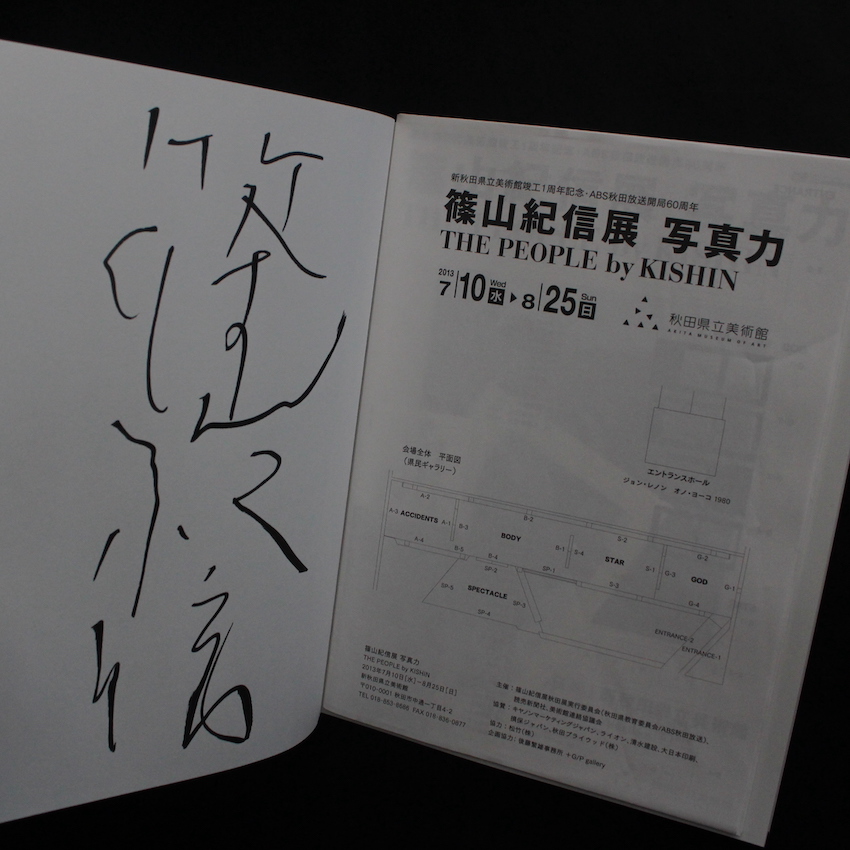 篠山紀信
新秋田県立美術館竣工1周年記念・ABS秋田放送開局60周年
篠山紀信展 写真力
THE PEOPLE by KISHIN
2013 7|10 Wed 水 ▶ 8|25 Sun 日
秋田県立美術館
AKITA MUSEUM OF ART
エントランスホール
ジョン・レノン オノ・ヨーコ 1980
会場全体 平面図
（県民ギャラリー）
A-2
A-3 ACCIDENTS A-1
A-4
B-3
B-2
BODY
B-1
B-5
B-4
S-2
S-4
STAR
S-1
S-3
G-2
G-3
GOD
G-1
G-4
SP-2
SP-1
SPECTACLE
SP-5
SP-3
SP-4
ENTRANCE-2
ENTRANCE-1
篠山紀信展 写真力
THE PEOPLE by KISHIN
2013年7月10日［水］−8月25日［日］
新秋田県立美術館
〒010-0001 秋田市中通一丁目4-2
TEL 018-853-8686 FAX 018-836-0877
主催：篠山紀信展秋田展実行委員会（秋田県教育委員会/ABS秋田放送）、
読売新聞社、美術館連絡協議会
協賛：キヤノンマーケティングジャパン、ライオン、清水建設、大日本印刷、
損保ジャパン、秋田プライウッド（株）
協力：松竹（株）
企画協力：後藤繁雄事務所 +G/P gallery